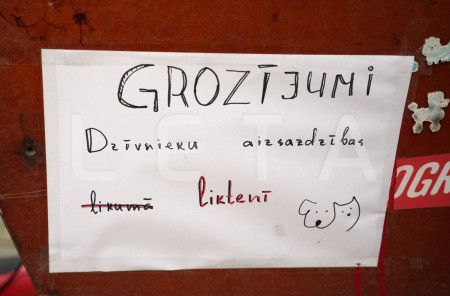 GROZĪJUMI
Dzīvnieku aizsazdzības
likumā liktenī
OGR
LETA